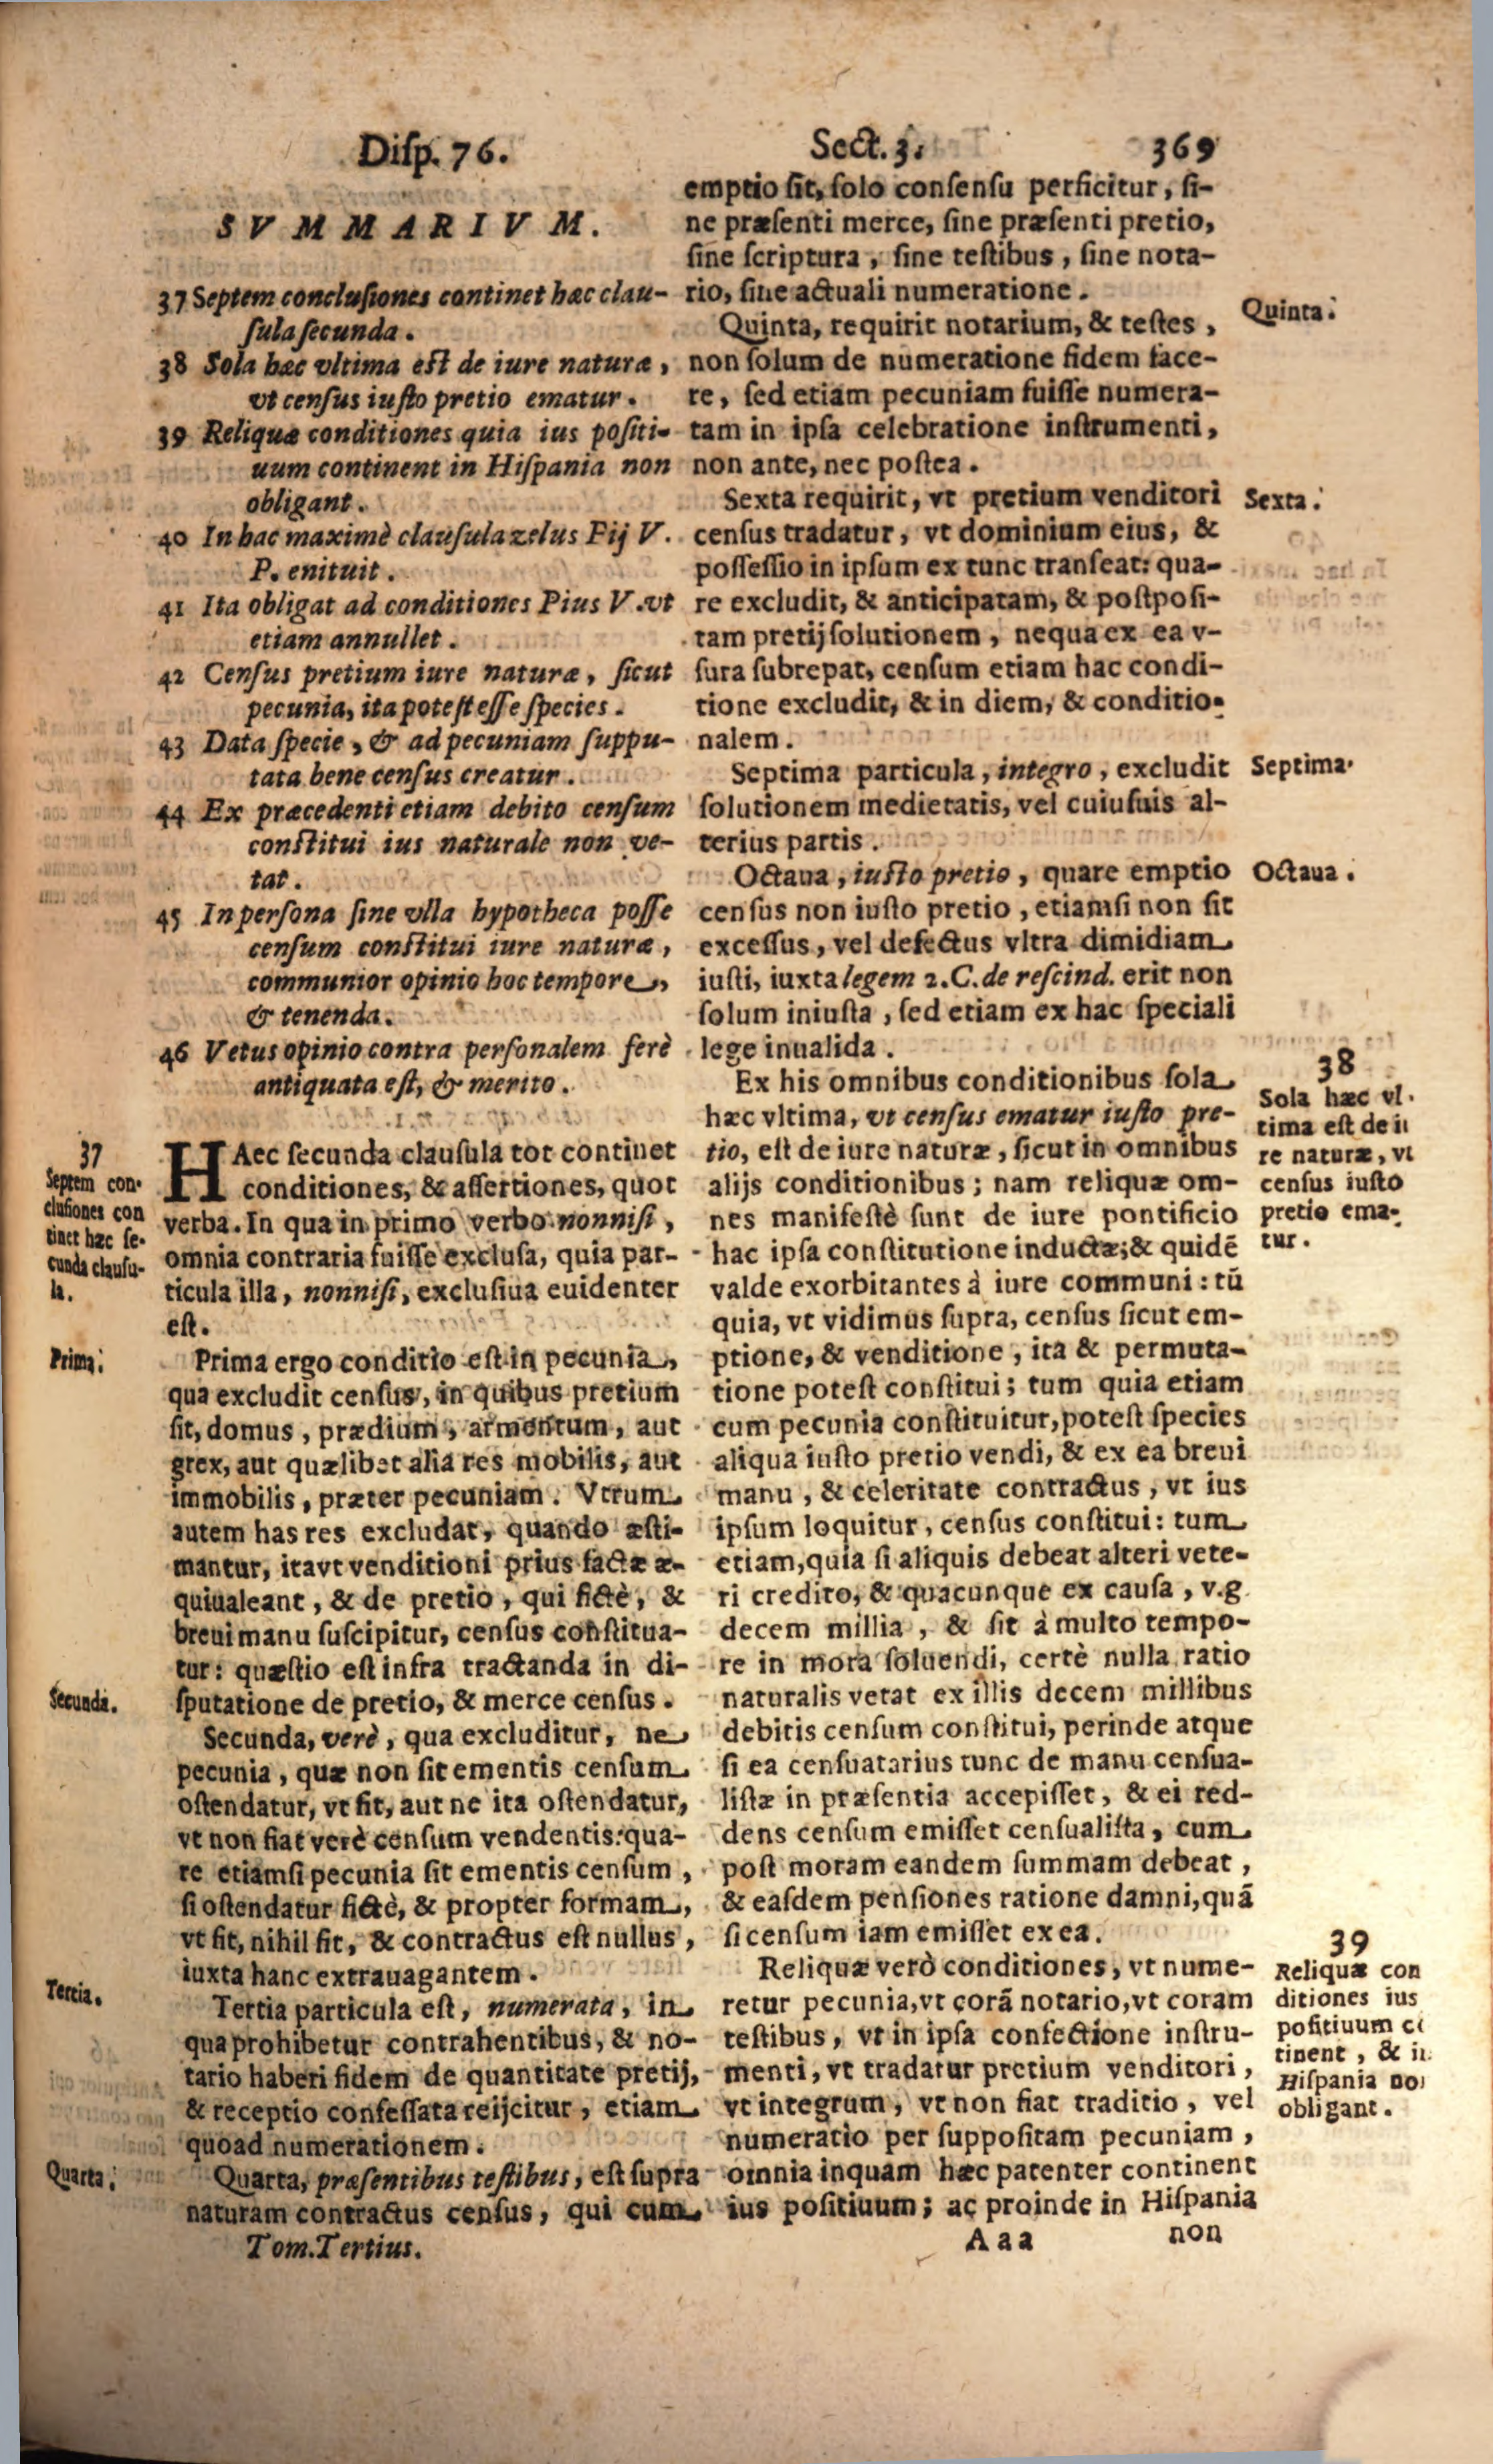 Disp. 76. Sect. 3. 369
SVMMARIVM.
37 Septem conclusiones continet hæc clau-
sula secunda.
38 Sola hæc vltima est de iure naturæ,
vt census iusto pretio ematur.
39 Reliquæ conditiones quia ius positi-
uum continent in Hispania non
obligant.
40 In hac maximè clausula zelus Pij V.
P. enituit.
41 Ita obligat ad conditiones Pius V. vt
etiam annullet.
42 Census pretium iure naturæ, sicut
pecunia, ita potest esse species.
43 Data specie, & ad pecuniam suppu-
tata bene census creatur.
44 Ex præcedenti etiam debito censum
constitui ius naturale non ve-
tat.
45 In persona sine vlla hypotheca posse
censum constitui iure naturæ,
communior opinio hoc tempore,
& tenenda.
46 Vetus opinio contra personalem ferè
antiquata est, & merito.
37
Septem con-
clusiones con
tinet hæc se-
cunda clausu-
la.
HAec secunda clausula tot continet
conditiones, & assertiones, quot
verba. In qua in primo verbo nonnisi,
omnia contraria fuisse exclusa, quia par-
ticula illa, nonnisi, exclusiua euidenter
est.
Prima.
Prima ergo conditio est in pecunia,
qua excludit census, in quibus pretium
sit, domus, prædium, armentum, aut
grex, aut quælibet alia res mobilis, aut
immobilis, præter pecuniam. Vtrum
autem has res excludat, quando æsti-
mantur, itavt venditioni prius factæ æ-
quiualeant, & de pretio, qui fictè, &
breui manu suscipitur, census constitua-
tur: quæstio est infra tractanda in di-
sputatione de pretio, & merce census.
Secunda.
Secunda, verè, qua excluditur, ne
pecunia, quæ non sit ementis censum
ostendatur, vt fit, aut ne ita ostendatur,
vt non fiat verè censum vendentis: qua-
re etiamsi pecunia sit ementis censum,
si ostendatur fictè, & propter formam,
vt fit, nihil fit, & contractus est nullus,
iuxta hanc extrauagantem.
Tertia.
Tertia particula est, numerata, in
qua prohibetur contrahentibus, & no-
tario haberi fidem de quantitate pretij,
& receptio confessata reijcitur, etiam
quoad numerationem.
Quarta.
Quarta, præsentibus testibus, est supra
naturam contractus census, qui cum
Tom. Tertius.
emptio sit, solo consensu perficitur, si-
ne præsenti merce, sine præsenti pretio,
sine scriptura, sine testibus, sine nota-
rio, sine actuali numeratione.
Quinta.
Quinta, requirit notarium, & testes,
non solum de numeratione fidem face-
re, sed etiam pecuniam fuisse numera-
tam in ipsa celebratione instrumenti,
non ante, nec postea.
Sexta.
Sexta requirit, vt pretium venditori
census tradatur, vt dominium eius, &
possessio in ipsum ex tunc transeat: qua-
re excludit, & anticipatam, & postposi-
tam pretij solutionem, nequa ex ea v-
sura subrepat, censum etiam hac condi-
tione excludit, & in diem, & conditio-
nalem.
Septima.
Septima particula, integro, excludit
solutionem medietatis, vel cuiusuis al-
terius partis.
Octaua.
Octaua, iusto pretio, quare emptio
census non iusto pretio, etiamsi non sit
excessus, vel defectus vltra dimidiam
iusti, iuxta legem 2. C. de rescind. erit non
solum iniusta, sed etiam ex hac speciali
lege inualida.
38
Sola hæc vl-
tima est de iu
re naturæ, vt
census iusto
pretio ema-
tur.
Ex his omnibus conditionibus sola
hæc vltima, vt census ematur iusto pre-
tio, est de iure naturæ, sicut in omnibus
alijs conditionibus; nam reliquæ om-
nes manifestè sunt de iure pontificio
hac ipsa constitutione inductæ; & quidē
valde exorbitantes à iure communi: tū
quia, vt vidimus supra, census sicut em-
ptione, & venditione, ita & permuta-
tione potest constitui; tum quia etiam
cum pecunia constituitur, potest species
aliqua iusto pretio vendi, & ex ea breui
manu, & celeritate contractus, vt ius
ipsum loquitur, census constitui: tum
etiam, quia si aliquis debeat alteri vete-
ri credito, & quacunque ex causa, v.g.
decem millia, & sit à multo tempo-
re in mora soluendi, certè nulla ratio
naturalis vetat ex illis decem millibus
debitis censum constitui, perinde atque
si ea censuatarius tunc de manu censua-
listæ in præsentia accepisset, & ei red-
dens censum emisset censualista, cum
post moram eandem summam debeat,
& easdem pensiones ratione damni, quā
si censum iam emisset ex ea.
39
Reliquæ con
ditiones ius
positiuum cō
tinent, & in
Hispania non
obligant.
Reliquæ verò conditiones, vt nume-
retur pecunia, vt corā notario, vt coram
testibus, vt in ipsa confectione instru-
menti, vt tradatur pretium venditori,
vt integrum, vt non fiat traditio, vel
numeratio per suppositam pecuniam,
omnia inquam hæc patenter continent
ius positiuum; ac proinde in Hispania
Aaa non